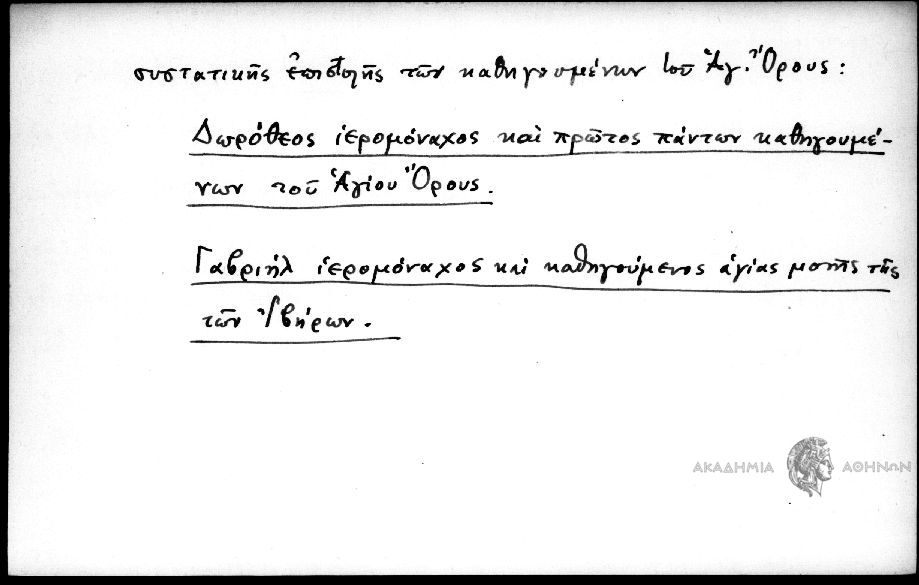 συστατικῆς ἐπιστολῆς τῶν καθηγουμένων τοῦ Ἁγ. Ὄρους:
Δωρόθεος ἱερομόναχος καὶ πρῶτος πάντων καθηγουμέ-
νων τοῦ Ἁγίου Ὄρους.
Γαβριὴλ ἱερομόναχος καὶ καθηγούμενος ἁγίας μονῆς τῆς
τῶν Ἰβήρων.
ΑΚΑΔΗΜΙΑ ΑΘΗΝΩΝ